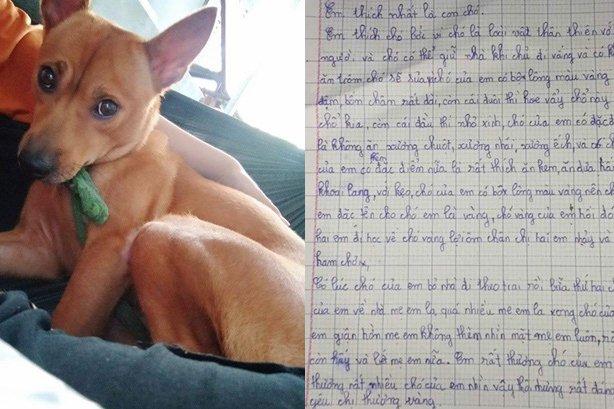 Em thích nhất là con chó.
Em thích chó bởi vì chó là loài vật thân thiên vớ
người. và chó có thể giữ nhà khi chủ đi vắng và có k
ăn trộm chó sẽ sủa, chó của em có bôn lông màu vàng
đậm, bôn chân rất dài, còn cái đuôi thì hoe vẩy chỗ này
chỗ kia, còn cái đầu thì nhỏ xinh, chó của em có đặc đ
là không ăn xương chuột, xương nhái, xương ếch, và
của em có đặc điểm nữa là rất thích ăn kem, ăn dưa,
khoa lang, với kẹo, chó của em có bôn lông màu vàng nên
em đặc tên cho chó em là vàng, chó vàng của em
hai em đi học về chó vàng lại ôm chân chị hai em nhảy và
ham chơi,
Có lúc chó của em bỏ nhà đi theo trai rồi bữa thứ hai
của em về nhà mẹ em la quá nhiều mẹ em la xong chó của
em giận hờn mẹ em không thèm nhìn mặt mẹ em luôn,
còn và mẹ em nữa. Em rất thương chó của em
thương rất nhiều chó của em nhìn vậy rất
yêu chi thương vàng.